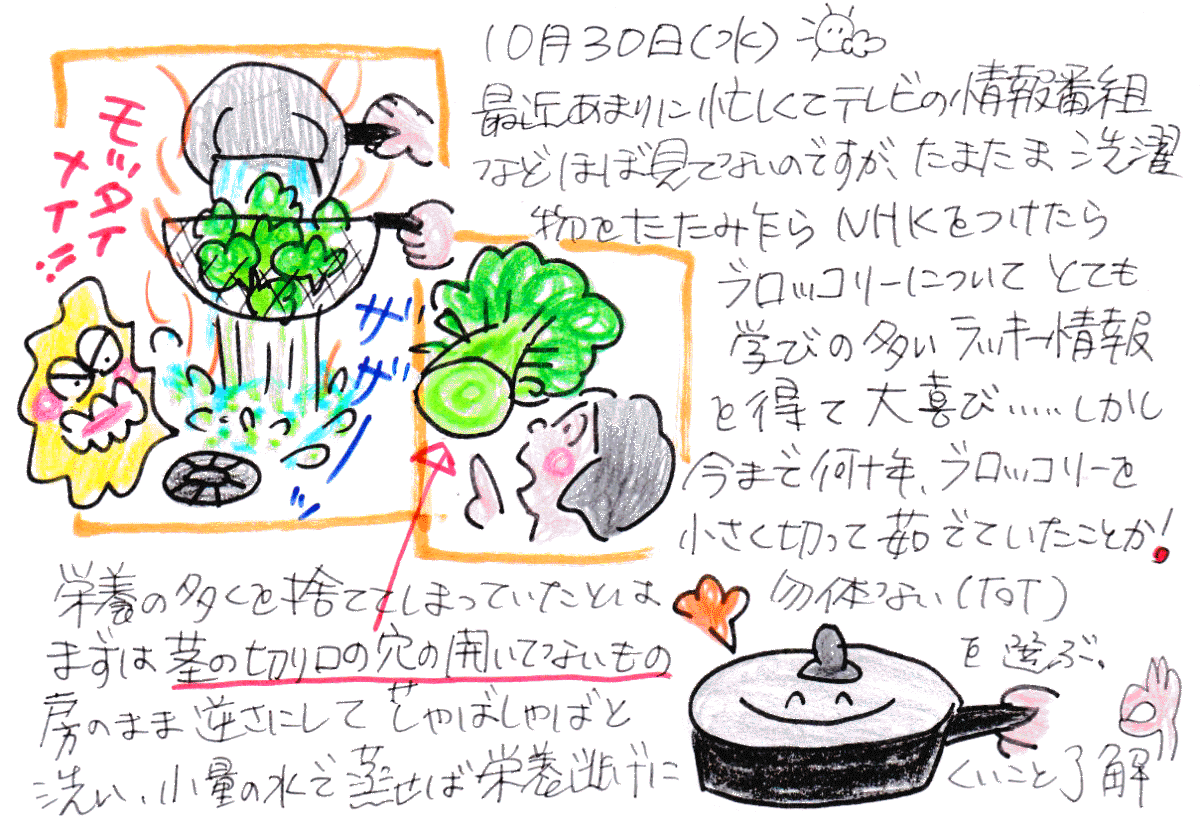 10月30日(水)
最近あまりに忙しくてテレビの情報番組
などほぼ見てないのですが、たまたま洗濯
物をたたみ乍らNHKをつけたら
ブロッコリーについてとても
学びの多いラッキー情報
を得て大喜び……しかし
今まで何十年、ブロッコリーを
小さく切って茹でていたことか!
栄養の多くを捨ててしまっていたとは 勿体ない(ToT)
まずは茎の切り口の穴の開いてないもの を選ぶ、
房のまま逆さにしてじゃばじゃばと
洗い、小量の水で蒸せば栄養逃げに くいこと了解
モッタイ
ナイ!!
ザッ
ザーッ